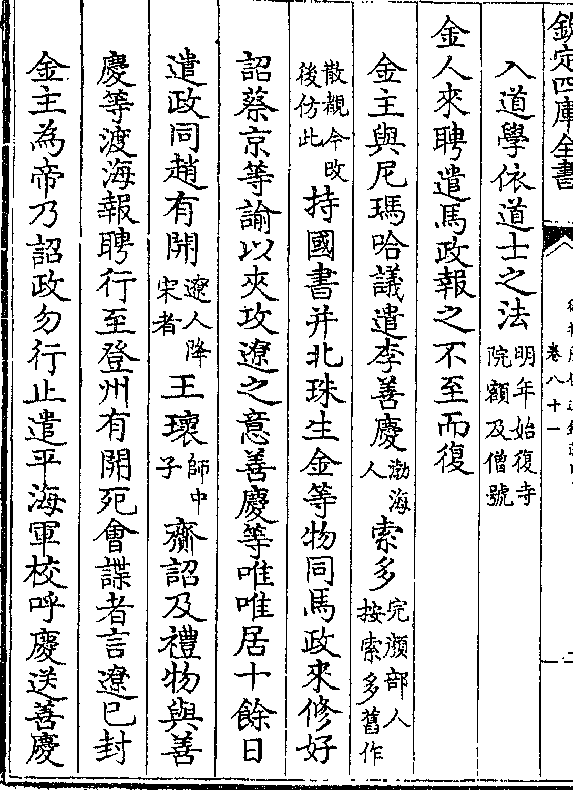 欽定四庫全書
卷八十一
入道學依道士之法明年始復寺院額及僧號
金人來聘遣馬政報之不至而復
金主與尼瑪哈議遣李善慶渤海人索多完顏部人按索多舊作
散覩今改後仿此持國書并北珠生金等物同馬政來修好
詔蔡京等諭以夾攻遼之意善慶等唯唯居十餘日
遣政同趙有開遼人降宋者王瓌師中子齎詔及禮物與善
慶等渡海報聘行至登州有開死會諜者言遼已封
金主為帝乃詔政勿行止遣平海軍校呼慶送善慶